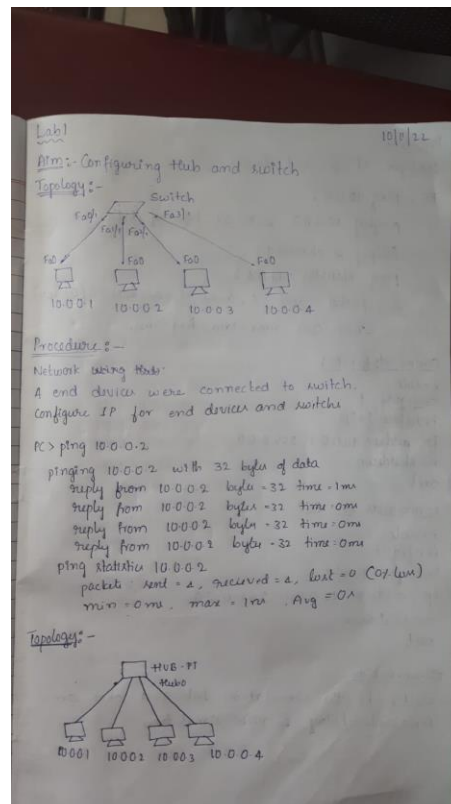 Lab1
10/11/22
Aim:- Configuring Hub and switch
Topology:-
Switch
Fa0/1 Fa1/1 Fa2/1 Fa3/1
Fa0 Fa0 Fa0 Fa0
10.0.0.1 10.0.0.2 10.0.0.3 10.0.0.4
Procedure:-
Network using
4 end devices were connected to switch.
Configure IP for end devices and switchs
PC> ping 10.0.0.2
pinging 10.0.0.2 with 32 bytes of data
reply from 10.0.0.2 bytes=32 time=1ms
reply from 10.0.0.2 bytes=32 time=0ms
reply from 10.0.0.2 bytes=32 time=0ms
reply from 10.0.0.2 bytes=32 time=0ms
ping statistics 10.0.0.2
packets sent = 4, recieved = 4, lost = 0 (0% loss)
min = 0ms, max = 1ms, Avg = 0s
Topology:-
HUB-PT
Hub0
10.0.0.1 10.0.0.2 10.0.0.3 10.0.0.4